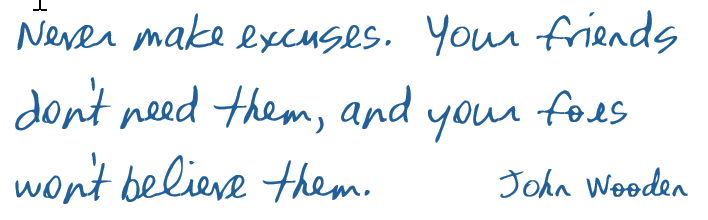 Never make excuses. Your friends
don't need them, and your foes
won't believe them. John Wooden